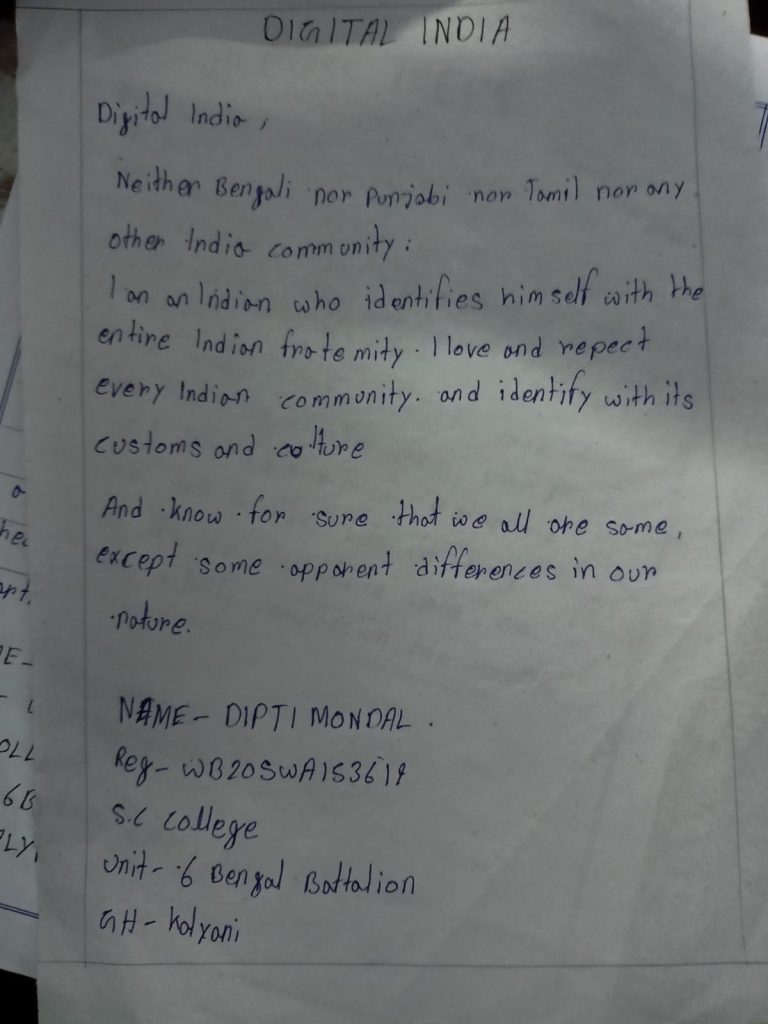 DIGITAL INDIA
Digital India,
Neither Bengali nor Punjabi nor Tamil nor any
other India community:
I an an Indian who identifies himself with the
entire Indian frate mity. I love and repect
every Indian community. and identify with its
customs and culture
And know for sure that we all are same,
except some apparent differences in our
nature.
NAME - DIPTI MONDAL.
Reg - WB20SWA153619
S.C College
Unit - 6 Bengal Battalion
GH - Kalyani